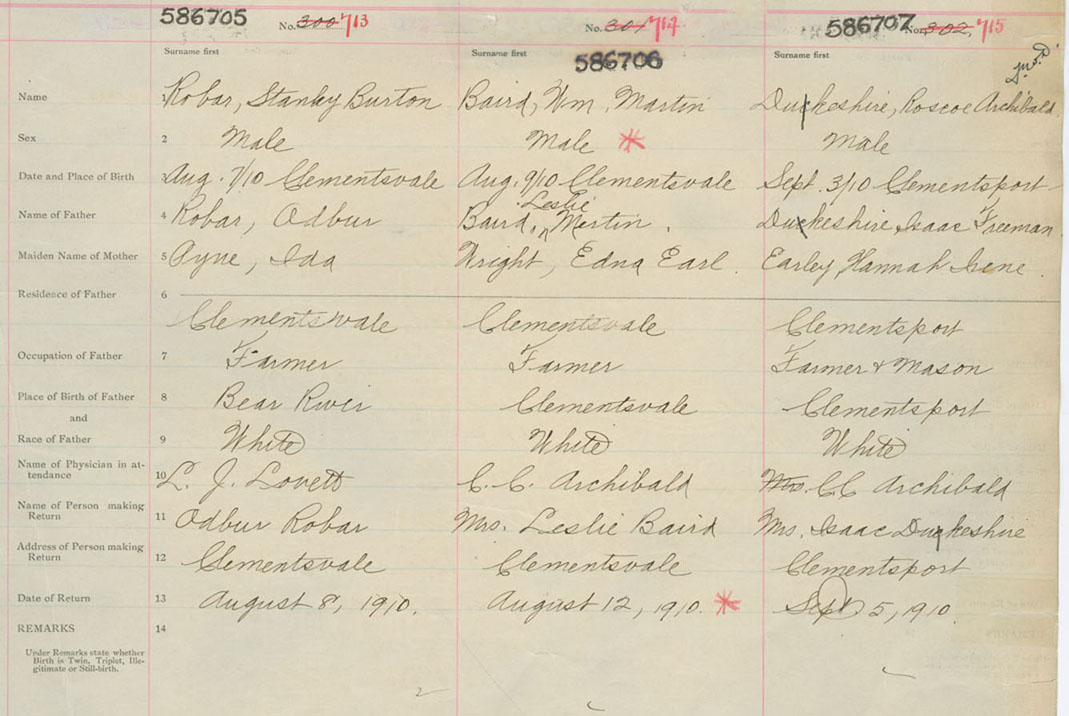 586705 No. 300 713 No. 301 714 586707 No. 302 715
Surname first Surname first Surname first
586706
Name 1 Robar, Stanley Burton Baird, Wm. Martin Duckeshire, Roscoe Archibald
Sex 2 Male Male Male
Date and Place of Birth 3 Aug. 7/10 Clementsvale Aug. 9/10 Clementsvale Sept. 3/10 Clementsport
Leslie
Name of Father 4 Robar, Odbur Baird, Martin. Duckeshire, Isaac Freeman
Maiden Name of Mother 5 Ayne, Ida Wright, Edna Earl. Earley, Hannah Irene.
Residence of Father 6
Clementsvale Clementsvale Clementsport
Occupation of Father 7 Farmer Farmer Farmer & Mason
Place of Birth of Father 8 Bear River Clementsvale Clementsport
and
Race of Father 9 White White White
Name of Physician in at-
tendance 10 L. J. Lovett C. C. Archibald Mrs. CC Archibald
Name of Person making
Return 11 Odbur Robar Mrs. Leslie Baird Mrs. Isaac Duckeshire
Address of Person making
Return 12 Clementsvale Clementsvale Clementsport
Date of Return 13 August 8, 1910. August 12, 1910. Sept 5, 1910.
REMARKS 14
Under Remarks state whether
Birth is Twin, Triplet, Ille-
gitimate or Still-birth.